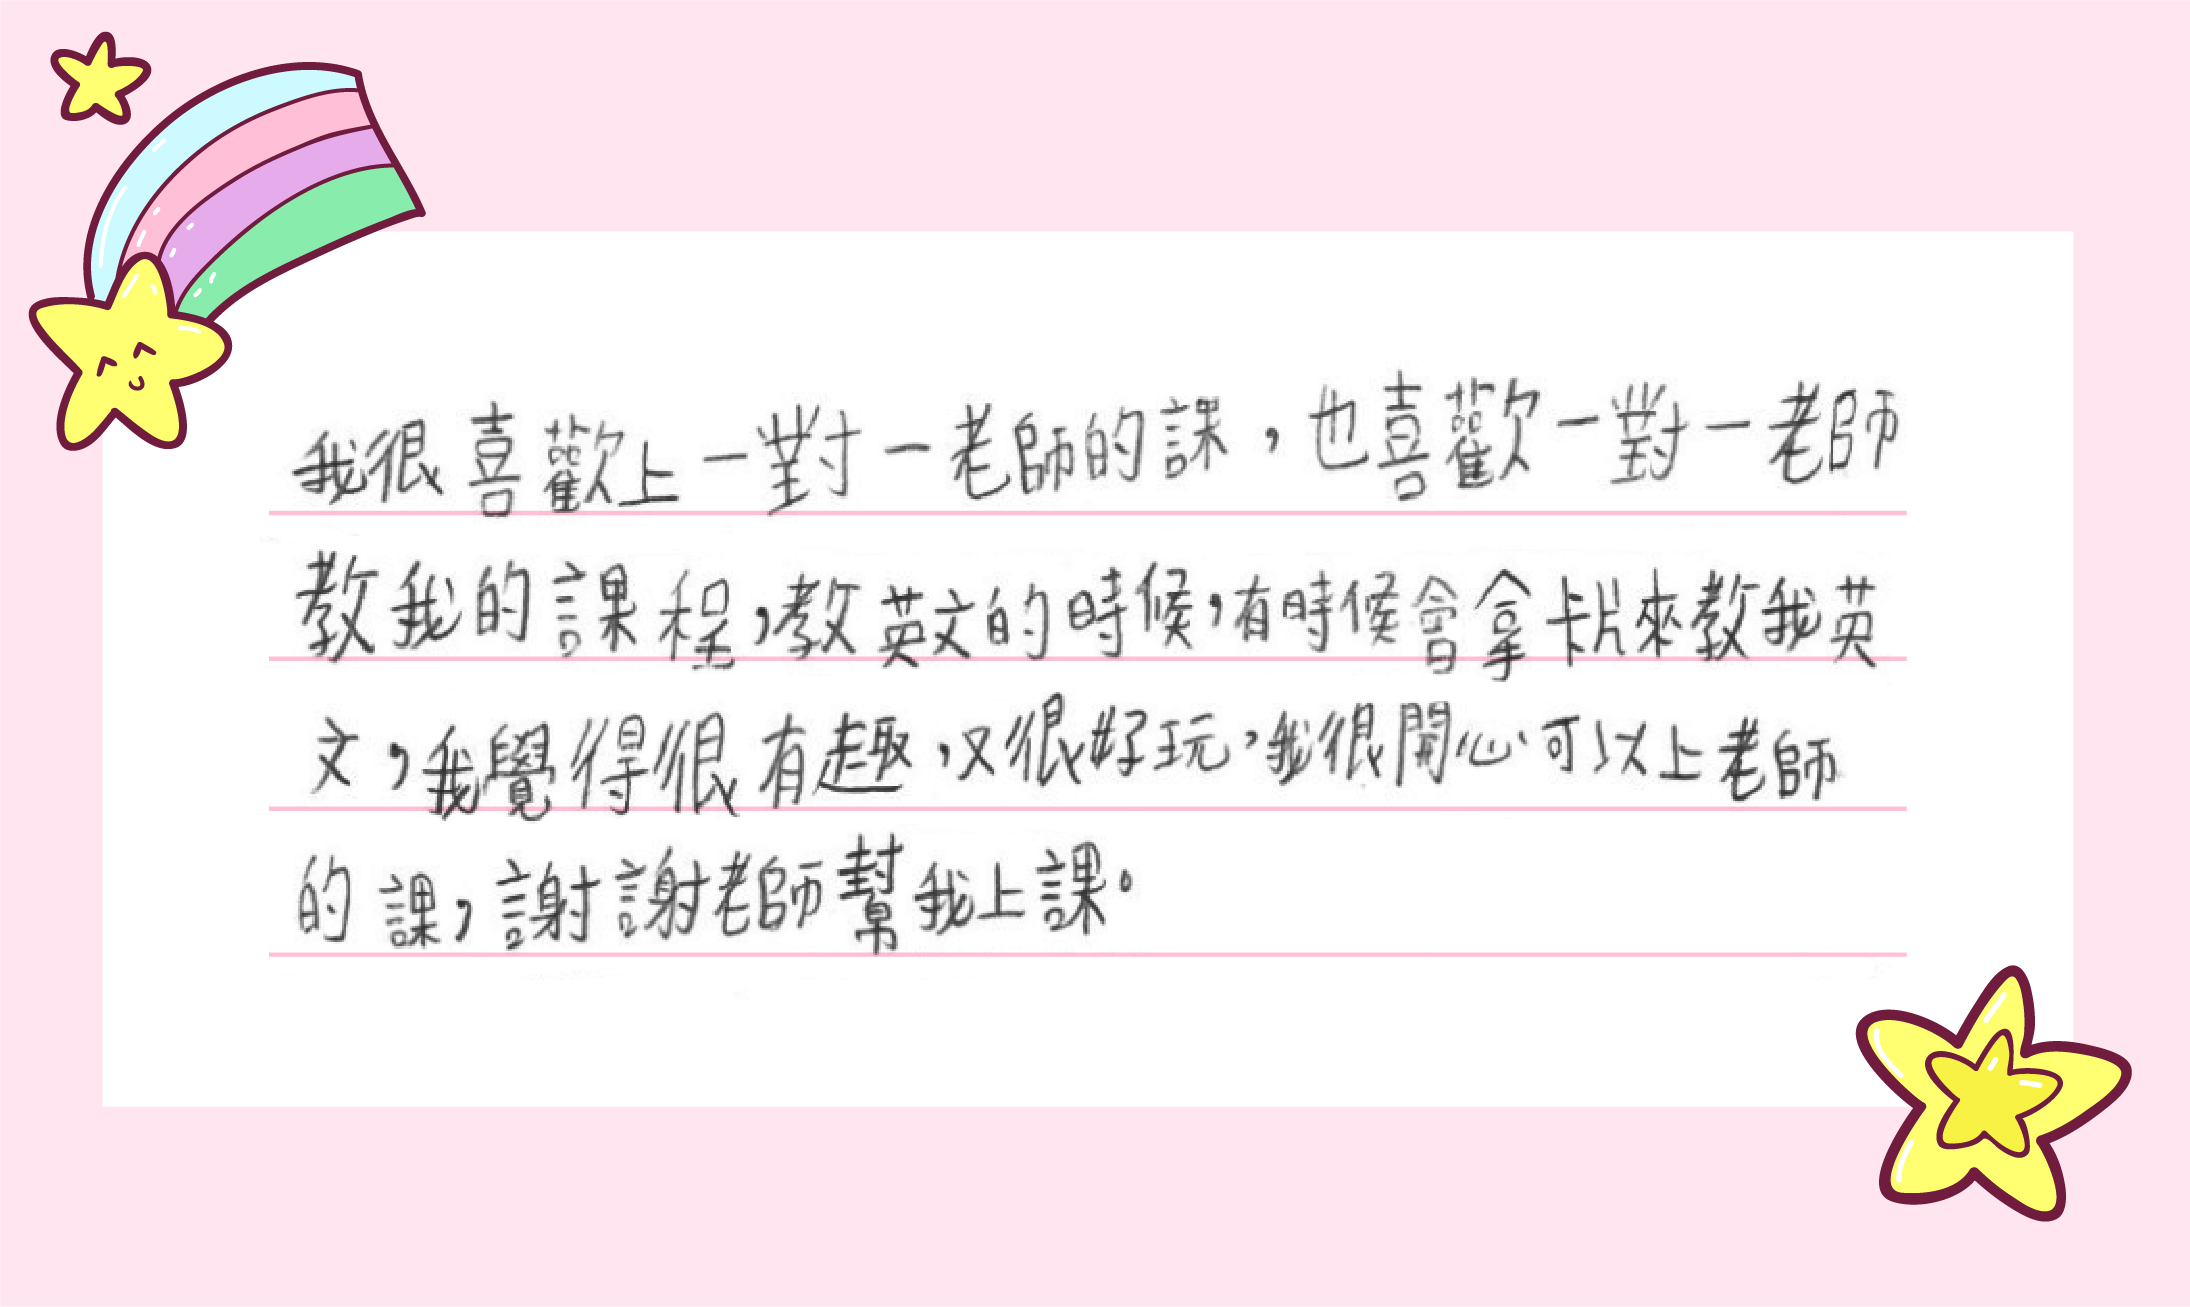 我很喜歡上一對一老師的課，也喜歡一對一老師
教我的課程，教英文的時候，有時候會拿卡片來教我英
文，我覺得很有趣，又很好玩，我很開心可以上老師
的課，謝謝老師幫我上課。